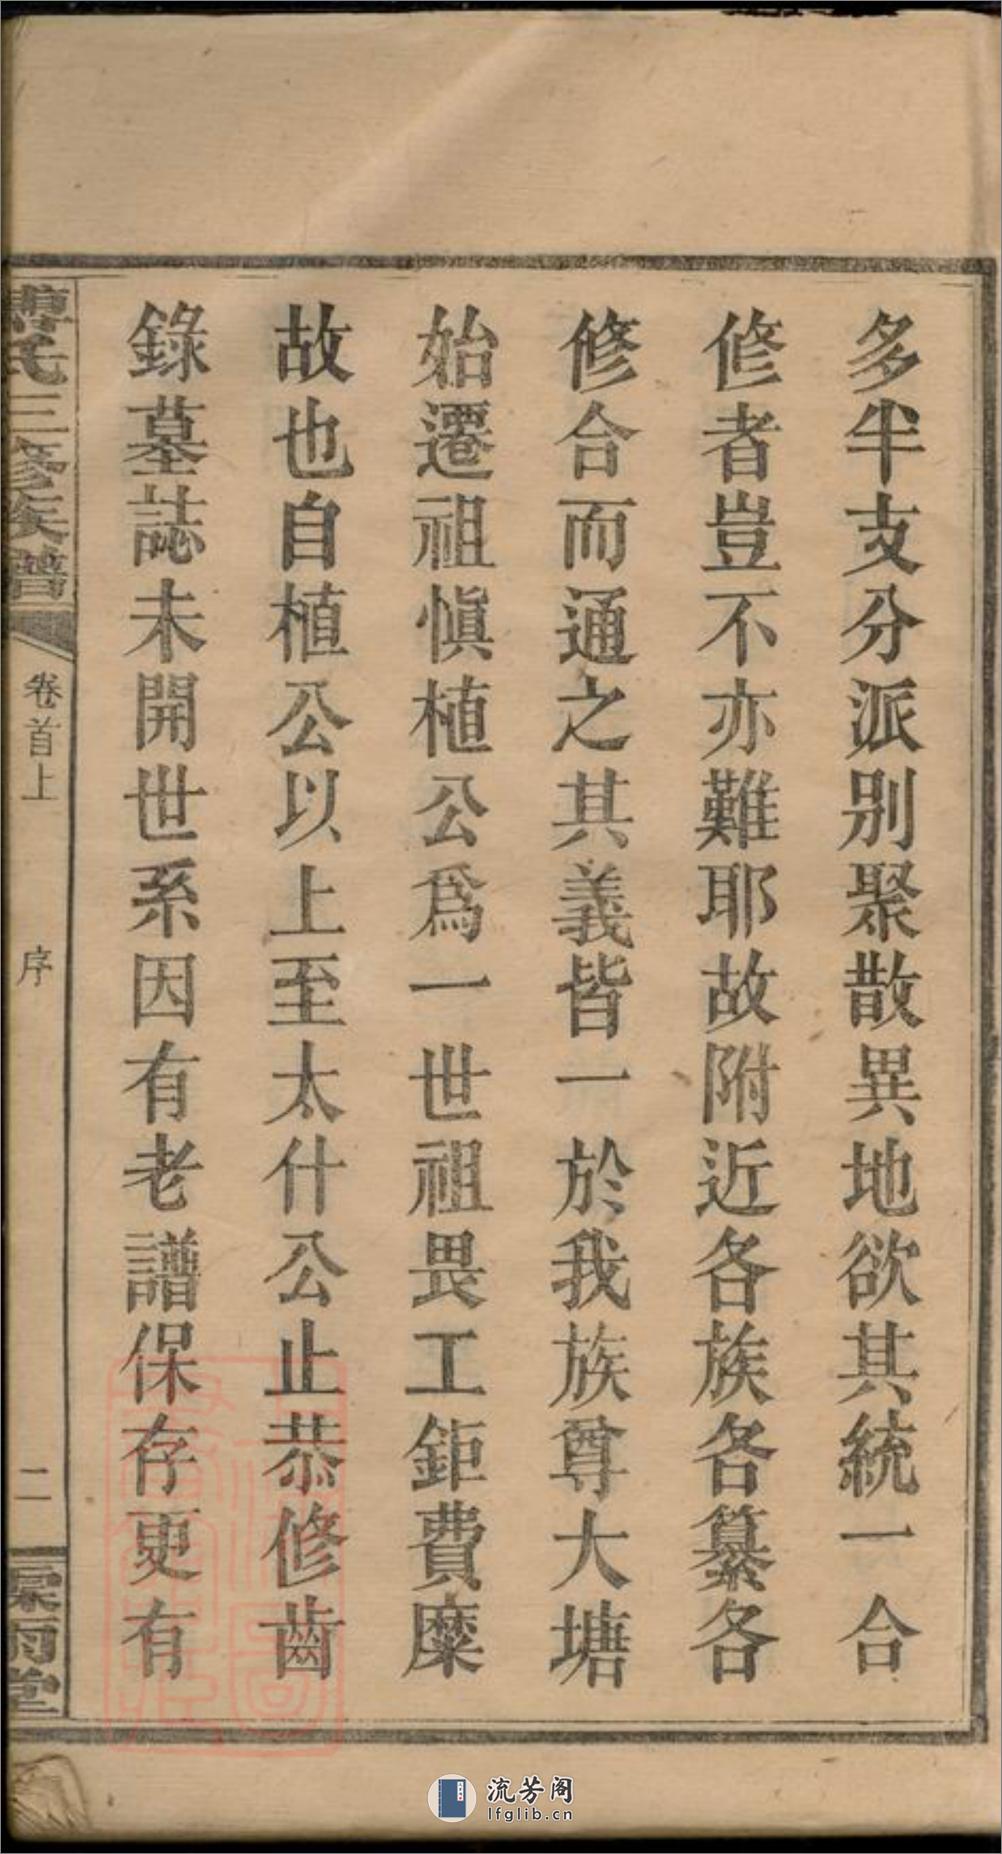 多半支分派別聚散異地欲其統一合
修者豈不亦難耶故附近各族各纂各
修合而通之其義皆一於我族尊大塘
始遷祖慎植公爲一世祖畏工鉅費糜
故也自植公以上至太什公止恭修齒
錄墓誌未開世系因有老譜保存更有
氏三修族譜
卷首上
序
二
雨堂
流芳阁
lfglib.cn